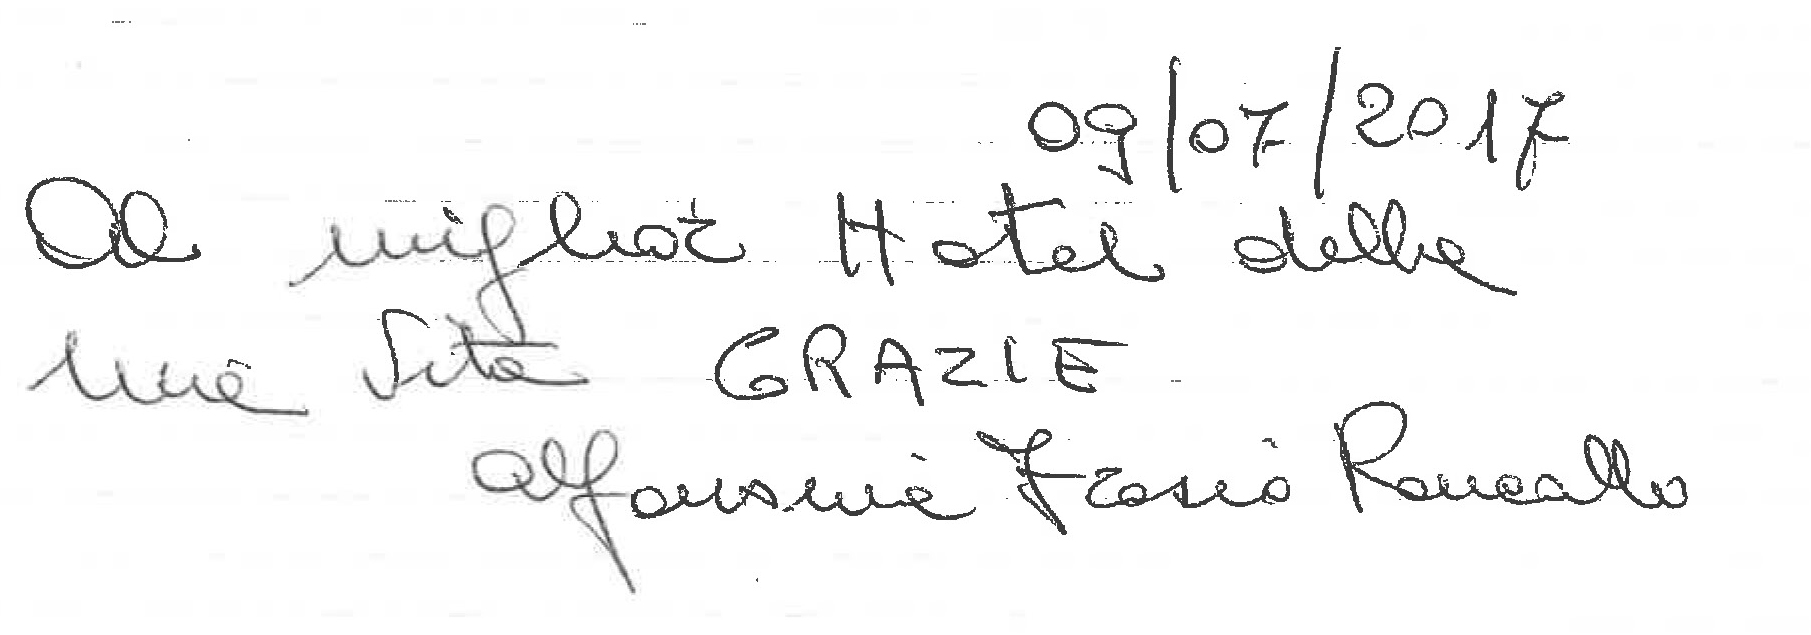 09/07/2017
Al miglior Hotel della
mia vita GRAZIE
Alfonsina